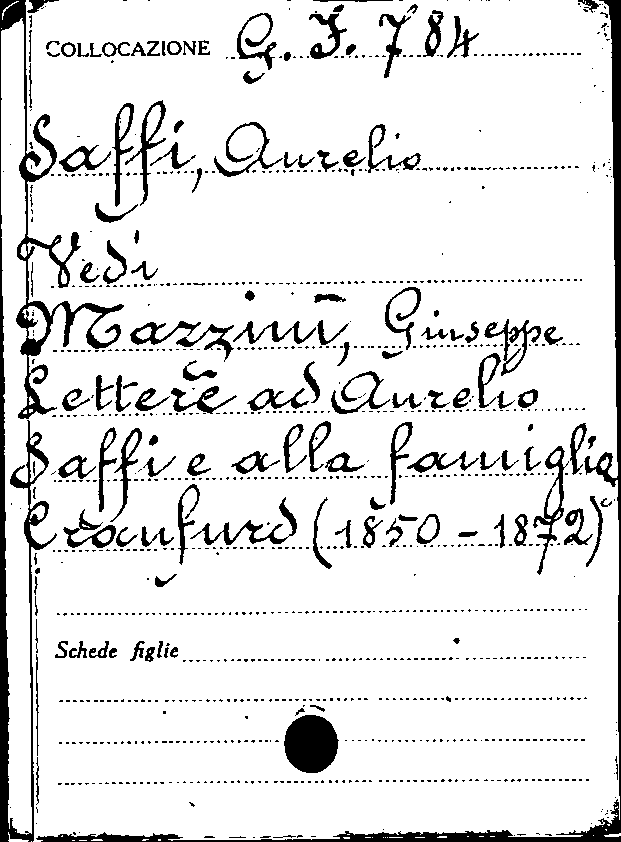 COLLOCAZIONE G. I. 784
Saffi, Aurelio
Vedi
Mazzini, Giuseppe
Lettere ad Aurelio
Saffi e alla famiglia
Craufurd (1850 - 1872)
Schede figlie